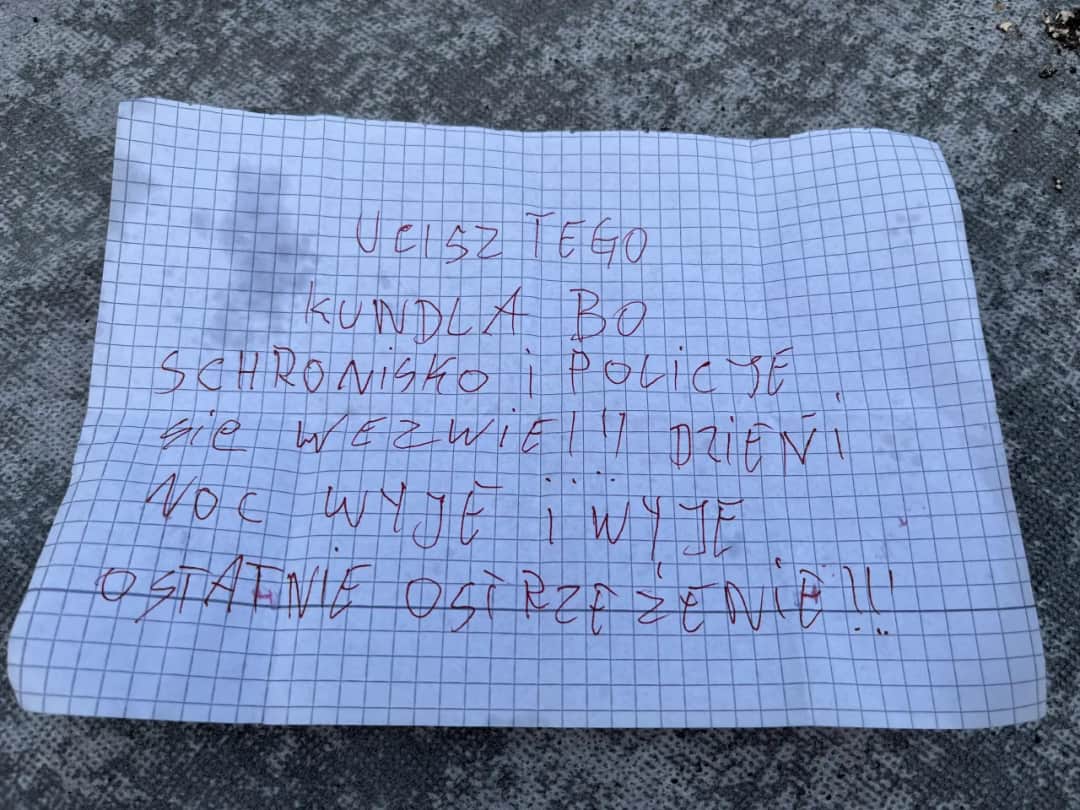 UCISZ TEGO
KUNDLA BO
SCHRONISKO i POLICJE
sie WEZWIE!!! DZIEŃ i
NOC WYJE i WYJE
OSTATNIE OSTRZEŻENIE!!!